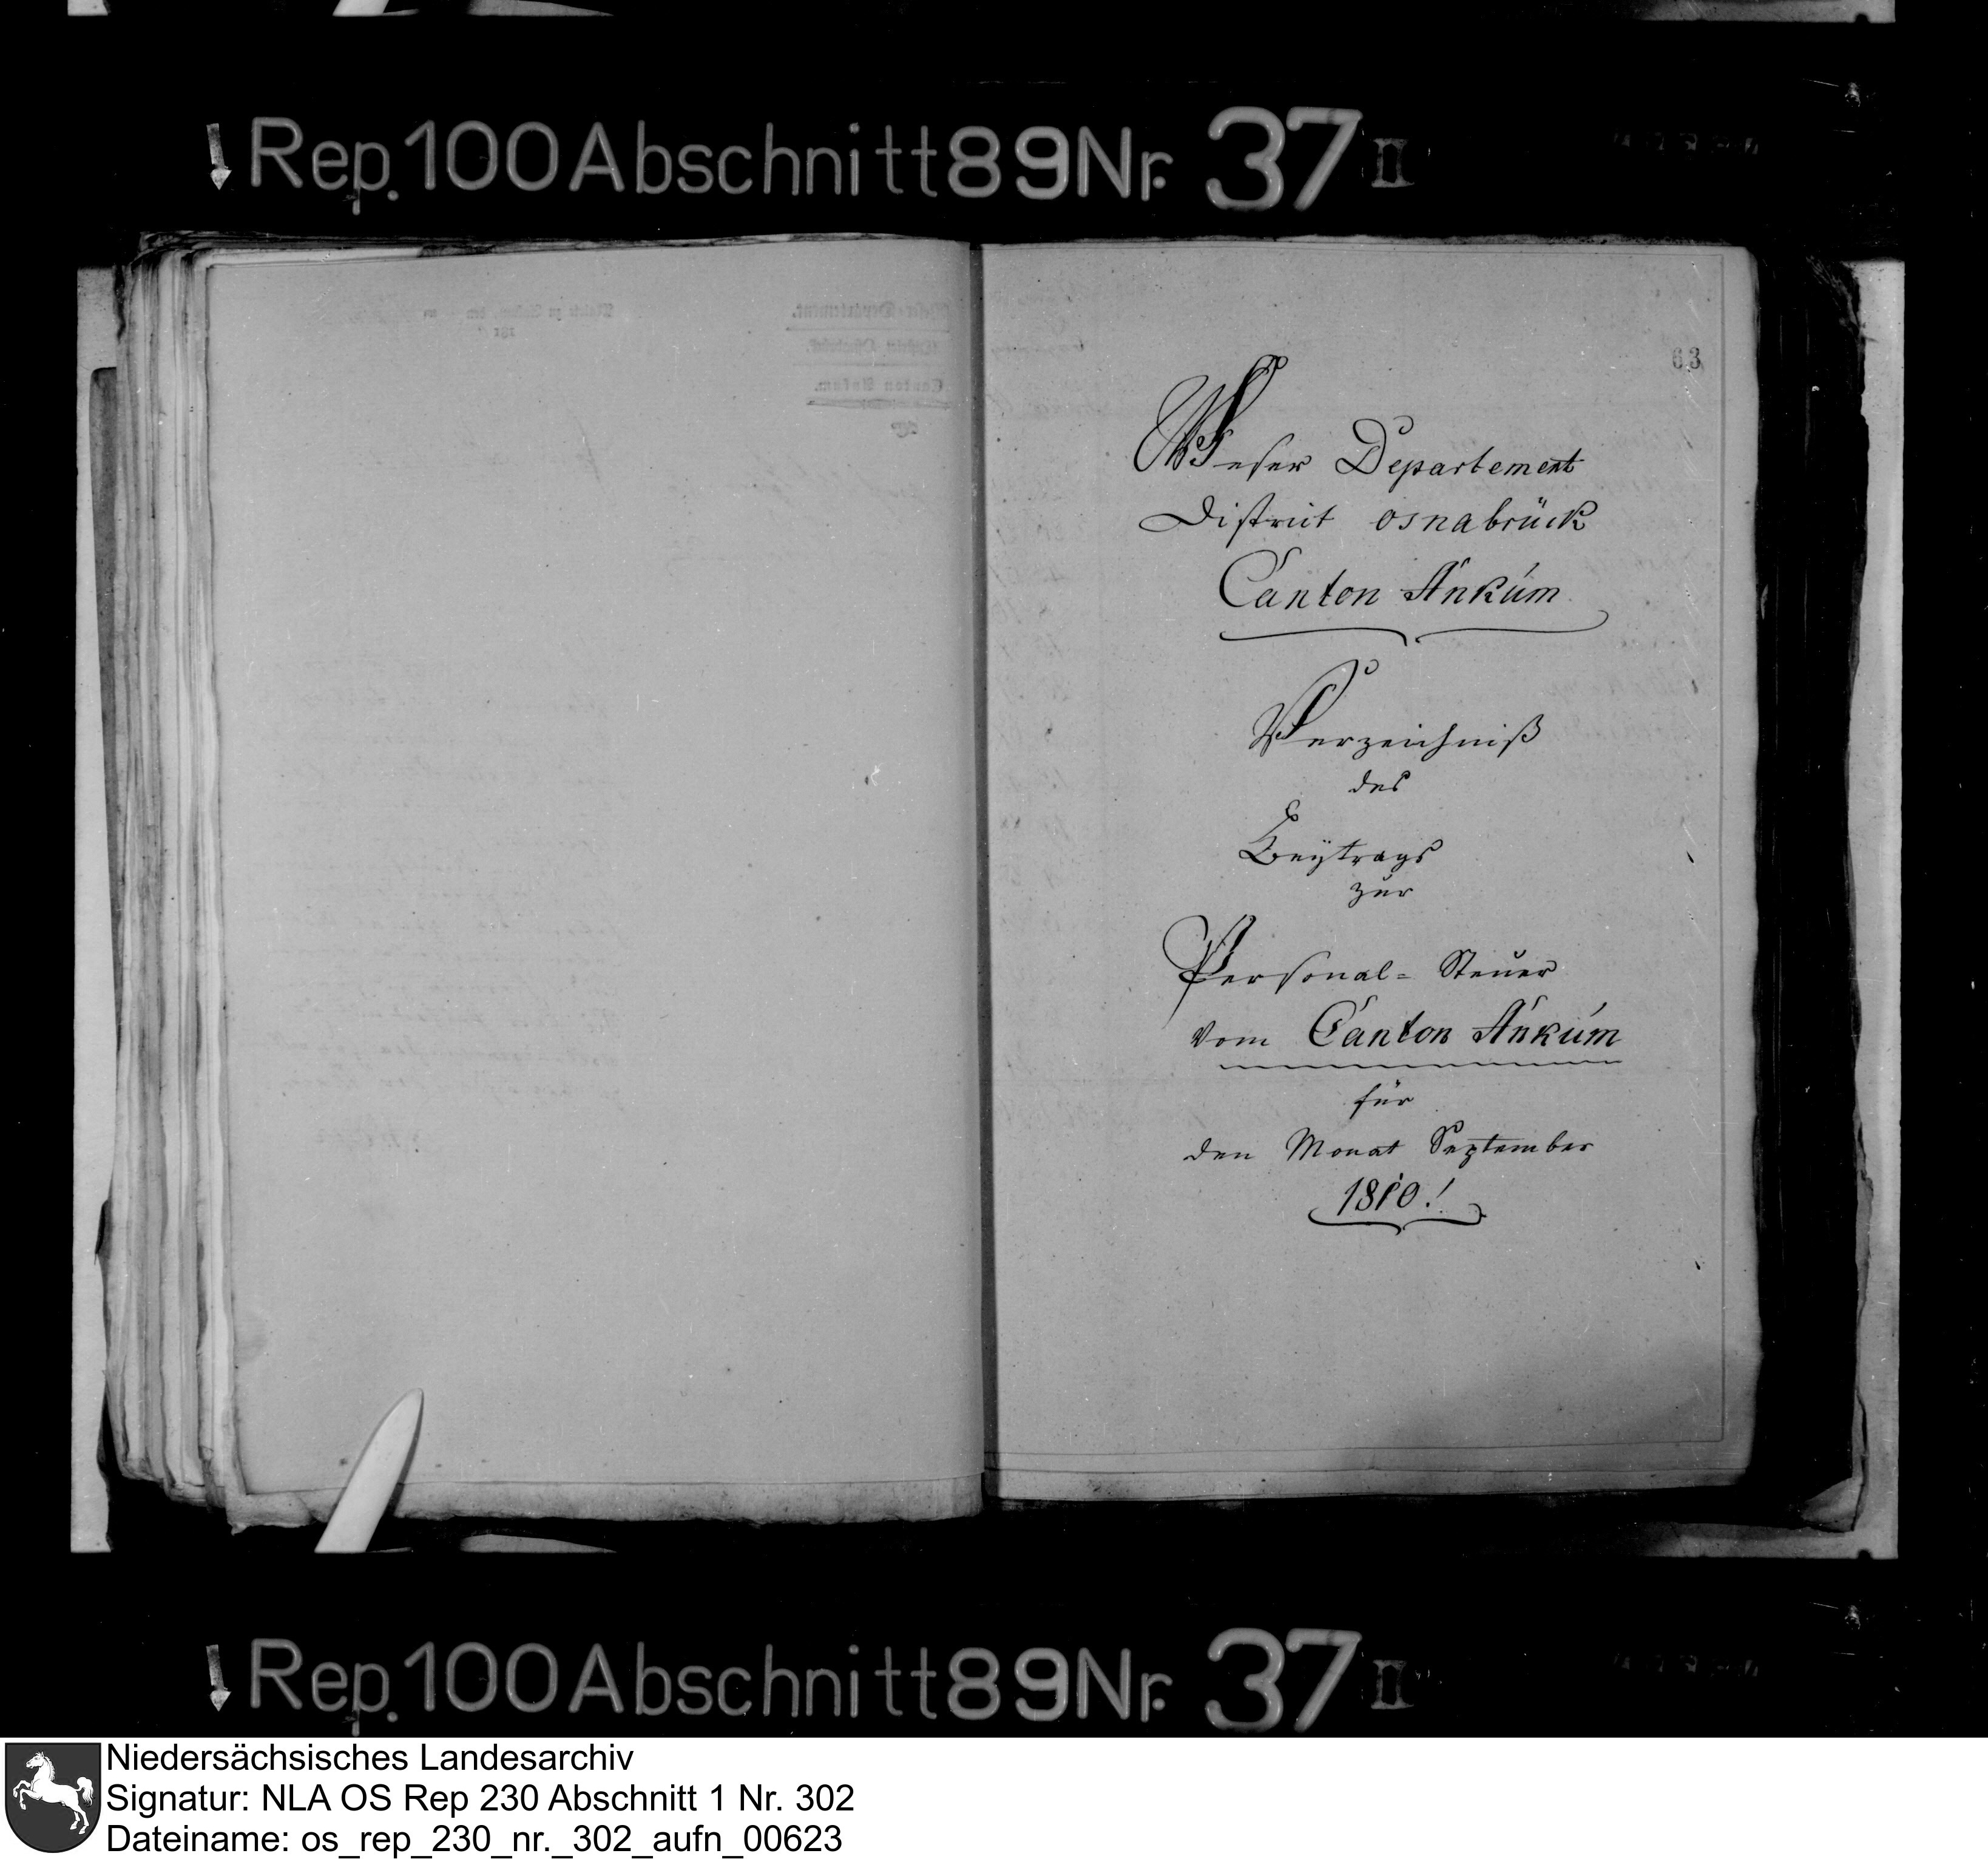 Rep. 100 Abschnitt 89 Nr. 37 II
63
Weser Departement
District Osnabrück
Canton Ankum
Verzeichniß
des
Beytrags
zur
Personal= Steuer
vom Canton Ankum
für
den Monat September
1810!
Rep. 100 Abschnitt 89 Nr. 37 II
Niedersächsisches Landesarchiv
Signatur: NLA OS Rep 230 Abschnitt 1 Nr. 302
Dateiname: os_rep_230_nr._302_aufn_00623